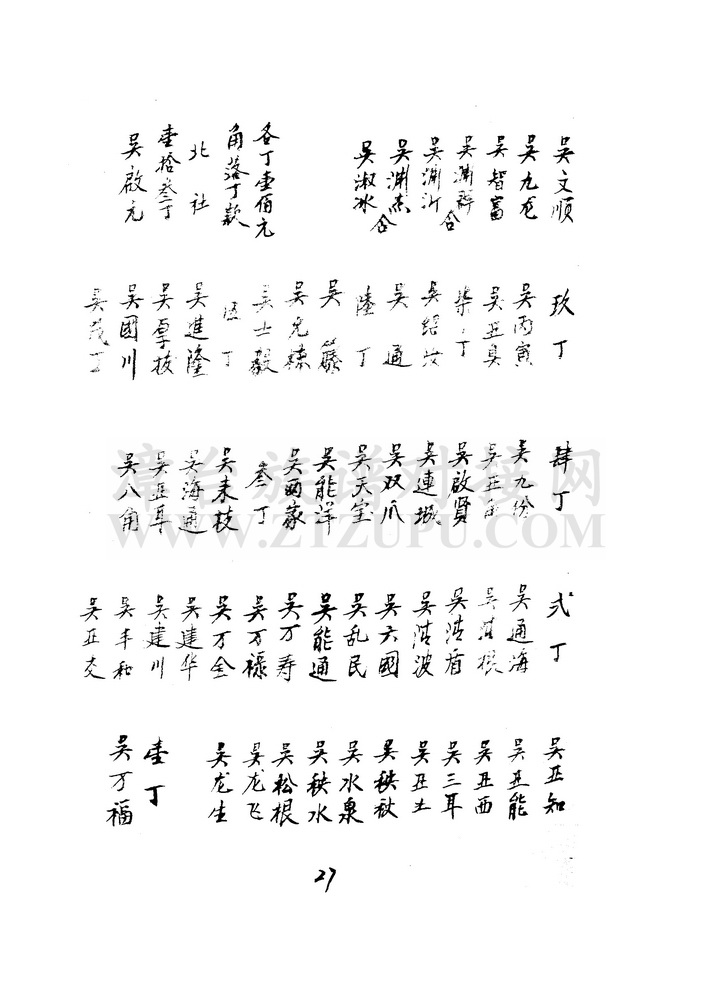 吴文顺
吴九龙
吴智富
吴渊
合
吴渊
吴渊杰
合
吴淑冰
各丁壹佰元
角落丁款
北社
壹拾叁丁
吴啟元
玖丁
吴丙寅
吴丑
柒丁
吴绍
吴通
陸丁
吴
吴光
吴士毅
伍丁
吴進隆
吴厚
吴國川
吴茂
肆丁
吴九份
吴亚
吴啟賢
吴連城
吴双爪
吴天宝
吴能洋
吴两家
叁丁
吴来枝
吴海通
吴亚耳
吴八角
弍丁
吴通海
吴清根
吴清盾
吴清波
吴六國
吴乱民
吴能通
吴万寿
吴万禄
吴万全
吴建华
吴建川
吴丰和
吴亚交
吴亚知
吴丑能
吴丑西
吴三耳
吴丑土
吴秧秋
吴水泉
吴秧水
吴松根
吴龙飞
吴龙生
壹丁
吴万福
27
漳台族谱对接网
WWW.ZTZUPU.COM